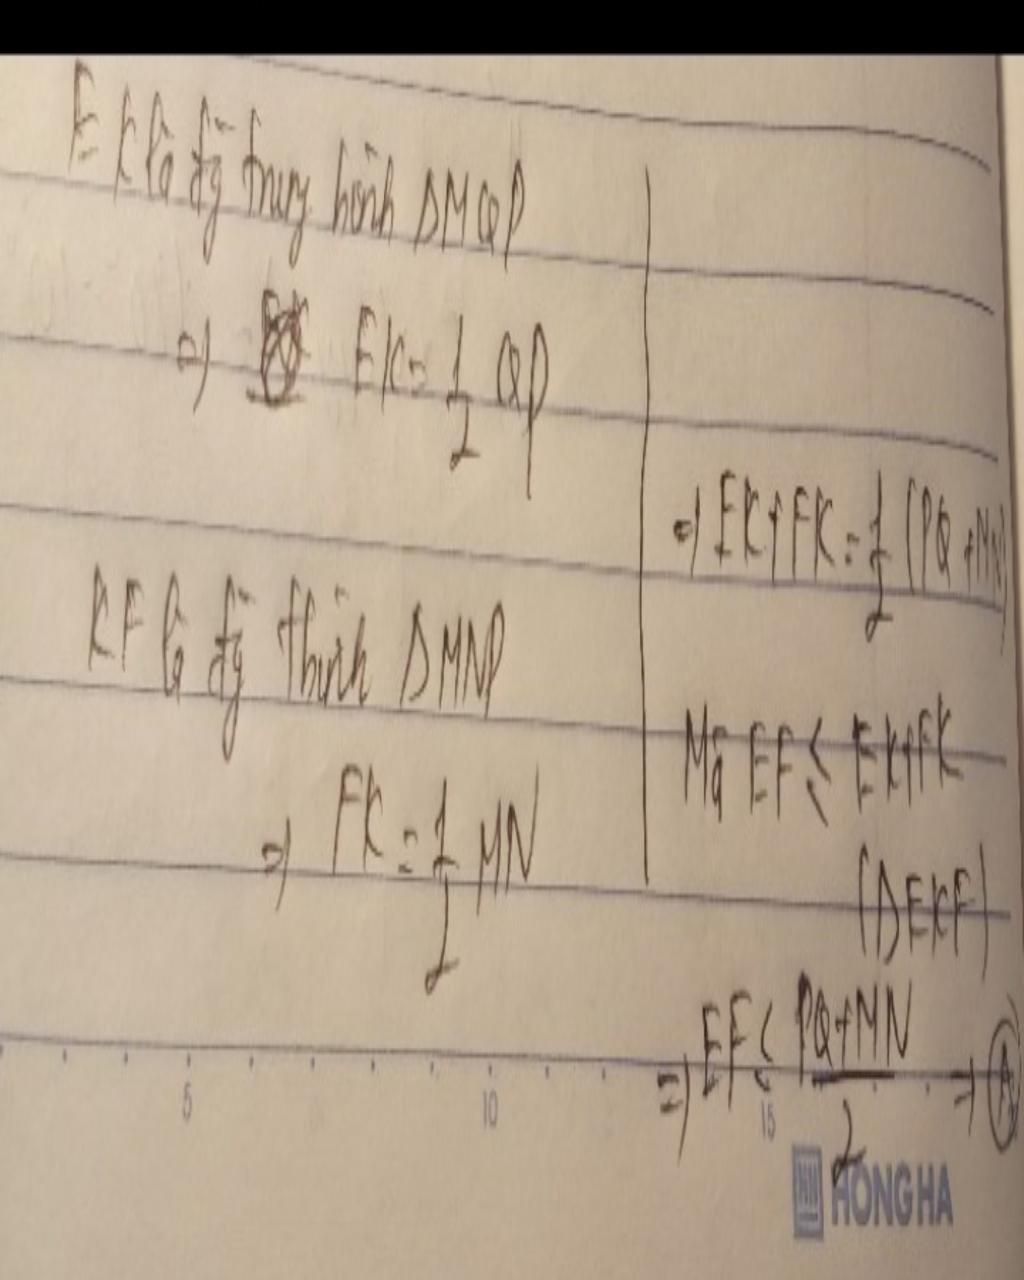 EK là đg trung bình ΔMQP
=> EK = 1/2 QP
KF là đg tbình ΔMNP
=> FK = 1/2 MN
=> EK + FK = 1/2 (PQ + MN)
Mà EF ≤ EK + FK
(ΔEKF)
=> EF ≤ (PQ + MN)/2 => A
5 10 15
HONG HA